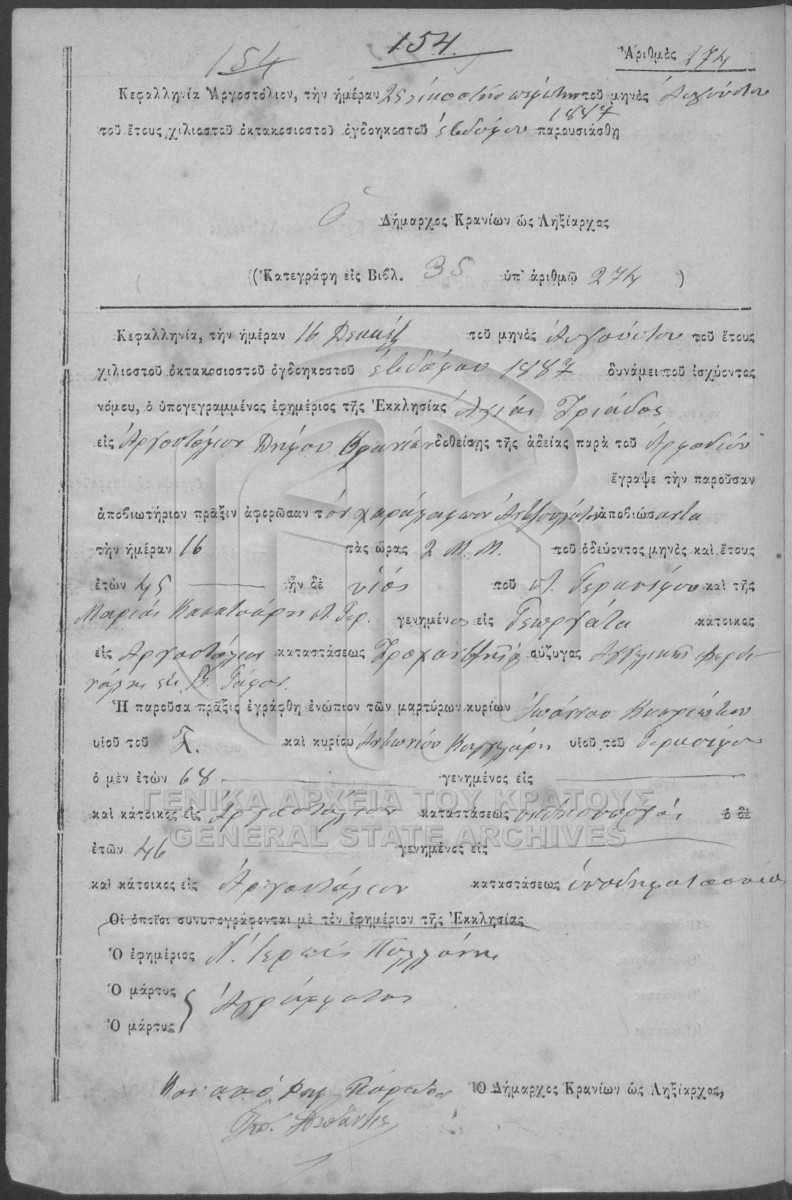 154
154.
Ἀριθμὸς 274
Κεφαλληνία Ἀργοστόλιον, τὴν ἡμέραν 25 εἰκοστὴν πέμπτην τοῦ μηνὸς Αὐγούστου
1887
τοῦ ἔτους χιλιοστοῦ ὀκτακοσιοστοῦ ὀγδοηκοστοῦ ἑβδόμου παρουσιάσθη
Ὁ Δήμαρχος Κρανίων ὡς Ληξίαρχος
(Κατεγράφη εἰς Βιβλ. 35 ὑπ' ἀριθμῷ 274 )
Κεφαλληνία, τὴν ἡμέραν 16 τοῦ μηνὸς Αὐγούστου τοῦ ἔτους
χιλιοστοῦ ὀκτακοσιοστοῦ ὀγδοηκοστοῦ ἑβδόμου 1887 δυνάμει τοῦ ἰσχύοντος
νόμου, ὁ ὑπογεγραμμένος ἐφημέριος τῆς Ἐκκλησίας Ἁγίας Τριάδος
εἰς Ἀργοστόλιον Δήμου Κρανίων δοθείσης τῆς ἀδείας παρὰ τοῦ Ἁρμοδίου
ἔγραψε τὴν παροῦσαν
ἀποβιωτήριον πρᾶξιν ἀφορῶσαν τὸν ἀποβιώσαντα
τὴν ἡμέραν 16 τὰς ὥρας 2 Μ.Μ. τοῦ ὁδεύοντος μηνὸς καὶ ἔτους
ἐτῶν 45 ἦν δὲ υἱὸς τοῦ π. Γερασίμου καὶ τῆς
Μαρίας γενημένος εἰς Γεωργάτα κάτοικος
εἰς Ἀργοστόλιον καταστάσεως σύζυγος Ἀγγελικῆς
Ἡ παροῦσα πρᾶξις ἐγράφθη ἐνώπιον τῶν μαρτύρων κυρίων Ἰωάννου
υἱοῦ τοῦ καὶ κυρίου Ἀντωνίου υἱοῦ τοῦ Γερασίμου
ὁ μὲν ἐτῶν 68 γενημένος εἰς
καὶ κάτοικος εἰς Ἀργοστόλιον καταστάσεως ὁ δὲ
ἐτῶν 46 γενημένος εἰς
καὶ κάτοικος εἰς Ἀργοστόλιον καταστάσεως ὑποδηματοποιὸς
Οἱ ὁποῖοι συνυπογράφονται μὲ τὸν ἐφημέριον τῆς Ἐκκλησίας
Ὁ ἐφημέριος Ν. Ἱερεὺς
Ὁ μάρτυς
Ἀγράμματοι
Ὁ μάρτυς
Ὁ Δήμαρχος Κρανίων ὡς Ληξίαρχος,
ΓΕΝΙΚΑ ΑΡΧΕΙΑ ΤΟΥ ΚΡΑΤΟΥΣ
GENERAL STATE ARCHIVES